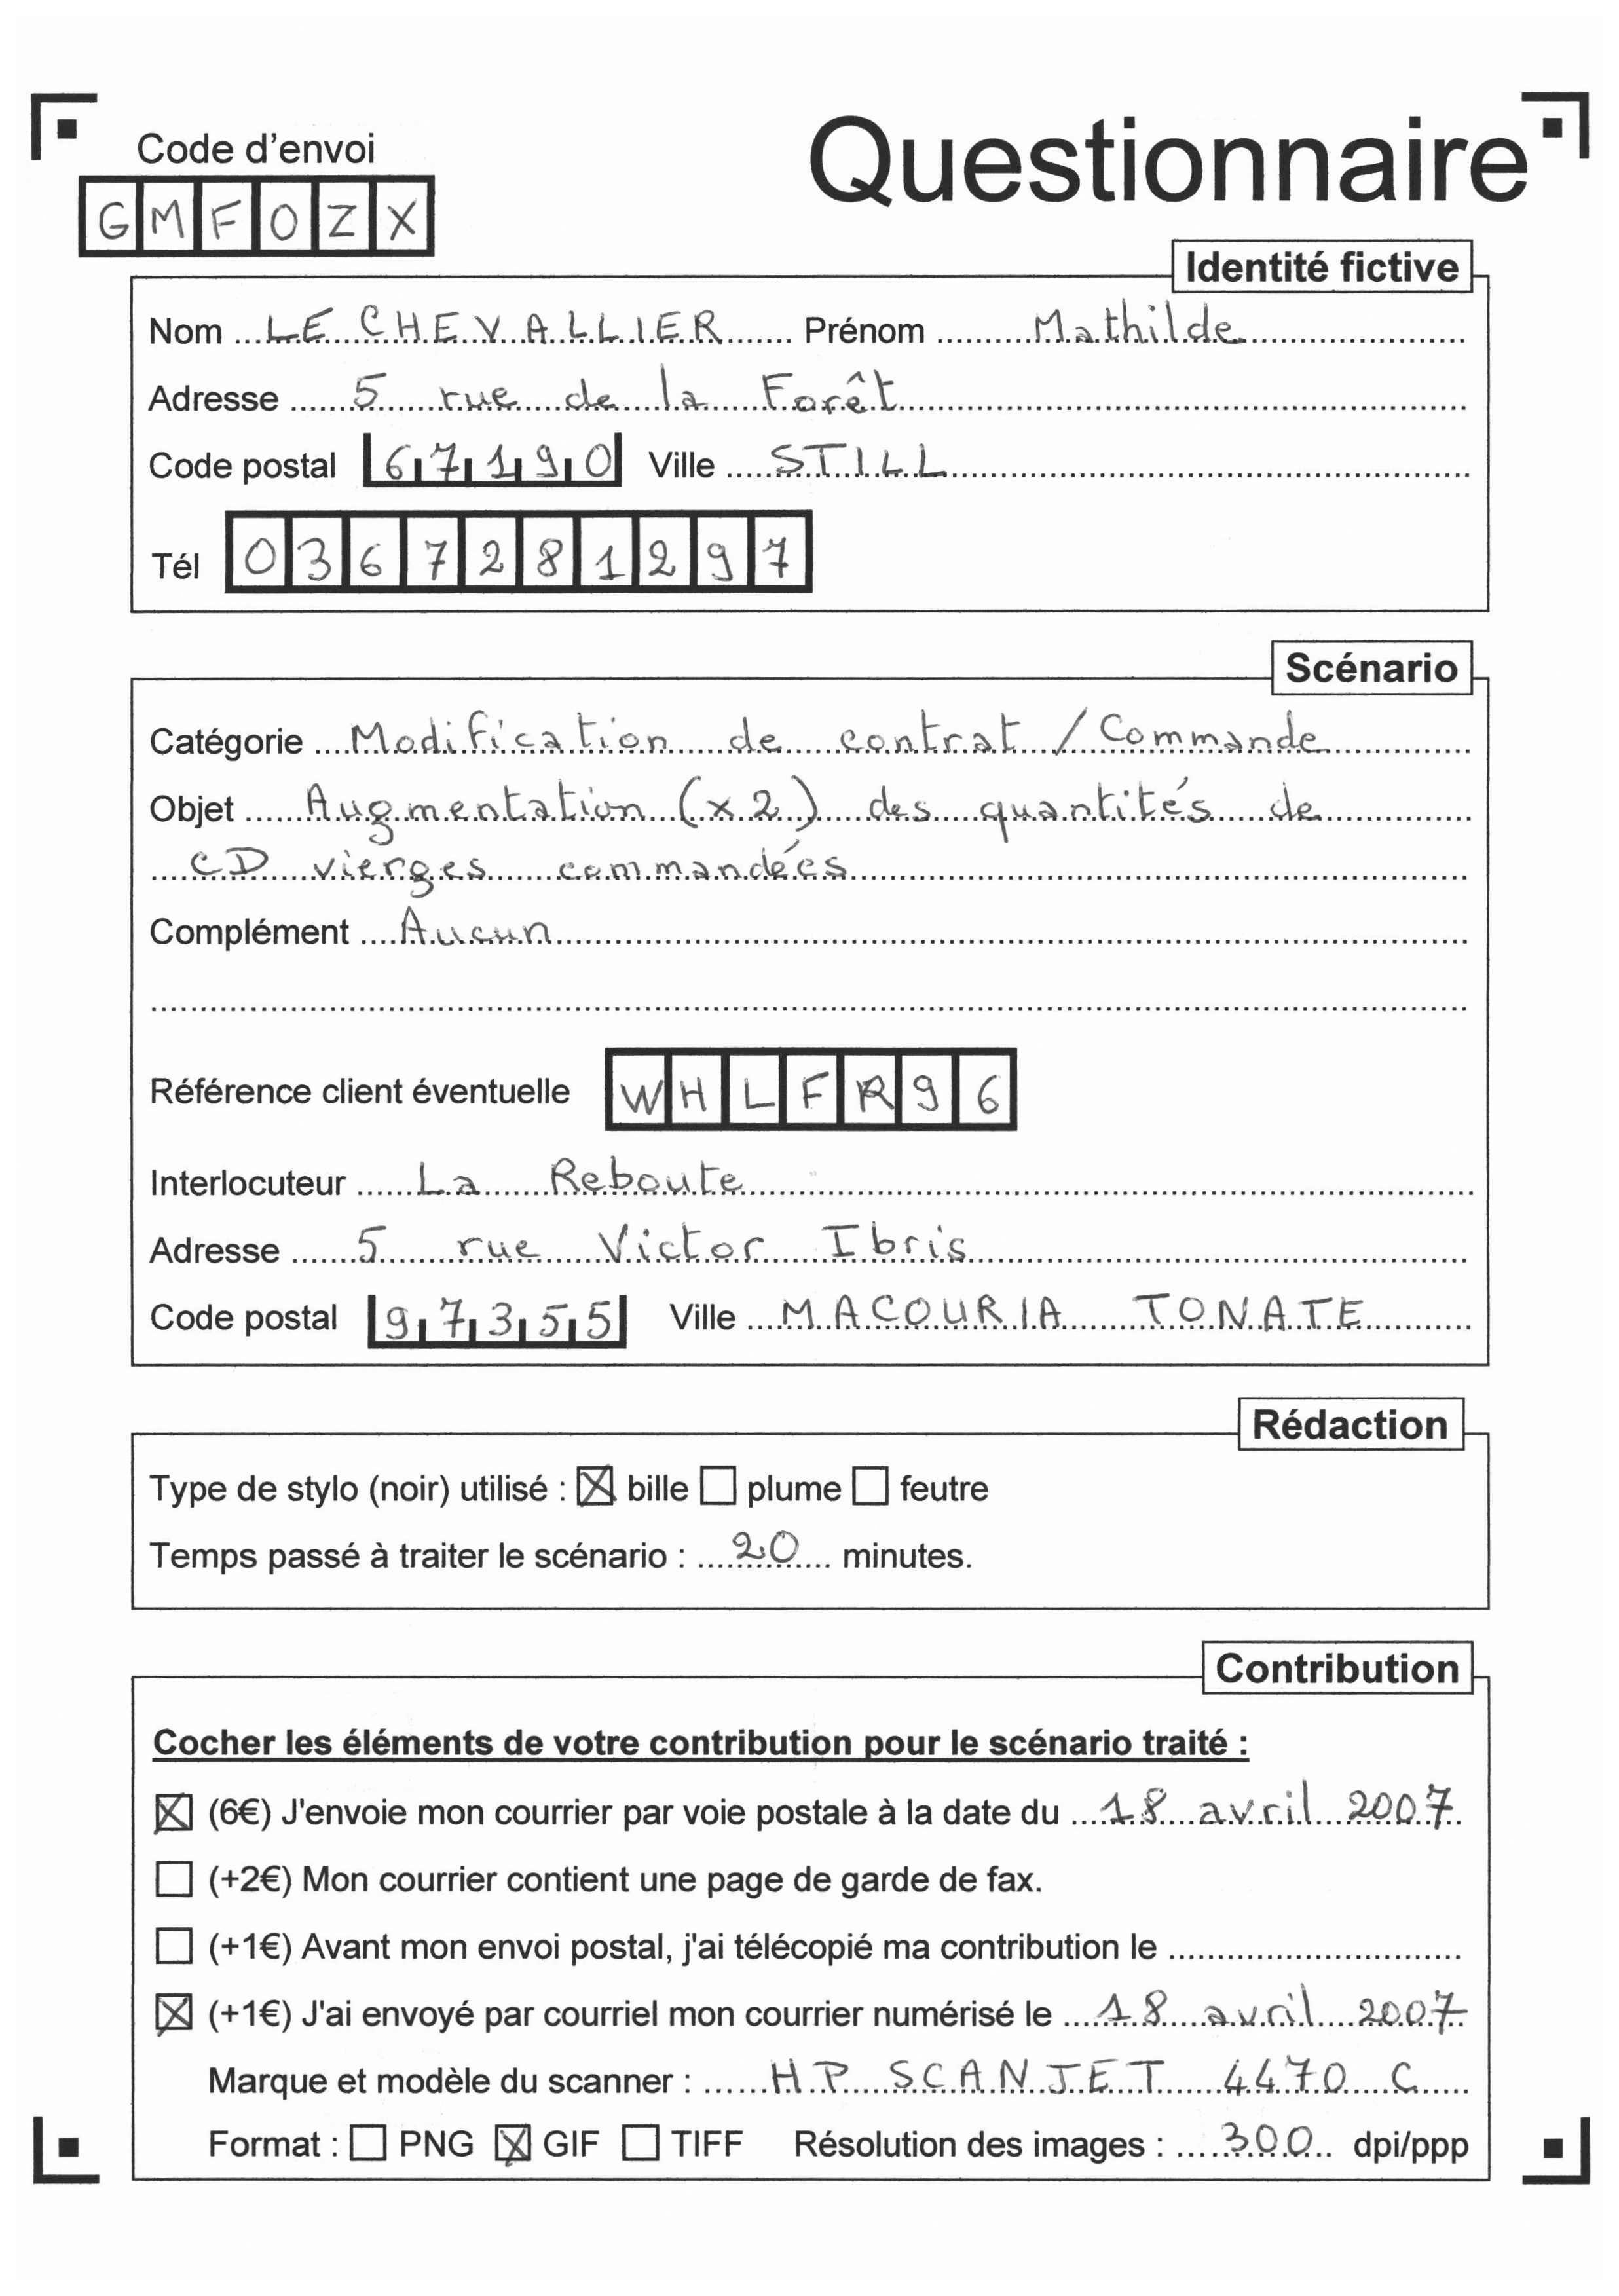 Code d'envoi
Questionnaire
GMFOZX
Identité fictive
Nom LE CHEVALLIER Prénom Mathilde
Adresse 5 rue de la Forêt
Code postal 67190 Ville STILL
Tél 0367281297
Scénario
Catégorie Modification de contrat / Commande
Objet Augmentation (x2) des quantités de
CD vierges commandées
Complément Aucun
Référence client éventuelle WHLFR96
Interlocuteur La Reboute
Adresse 5 rue Victor Ibris
Code postal 97355 Ville MACOURIA TONATE
Rédaction
Type de stylo (noir) utilisé : ☒ bille ☐ plume ☐ feutre
Temps passé à traiter le scénario : 20 minutes.
Contribution
Cocher les éléments de votre contribution pour le scénario traité :
☒ (6€) J'envoie mon courrier par voie postale à la date du 18 avril 2007
☐ (+2€) Mon courrier contient une page de garde de fax.
☐ (+1€) Avant mon envoi postal, j'ai télécopié ma contribution le
☒ (+1€) J'ai envoyé par courriel mon courrier numérisé le 18 avril 2007
Marque et modèle du scanner : HP SCANJET 4470 C
Format : ☐ PNG ☒ GIF ☐ TIFF Résolution des images : 300 dpi/ppp